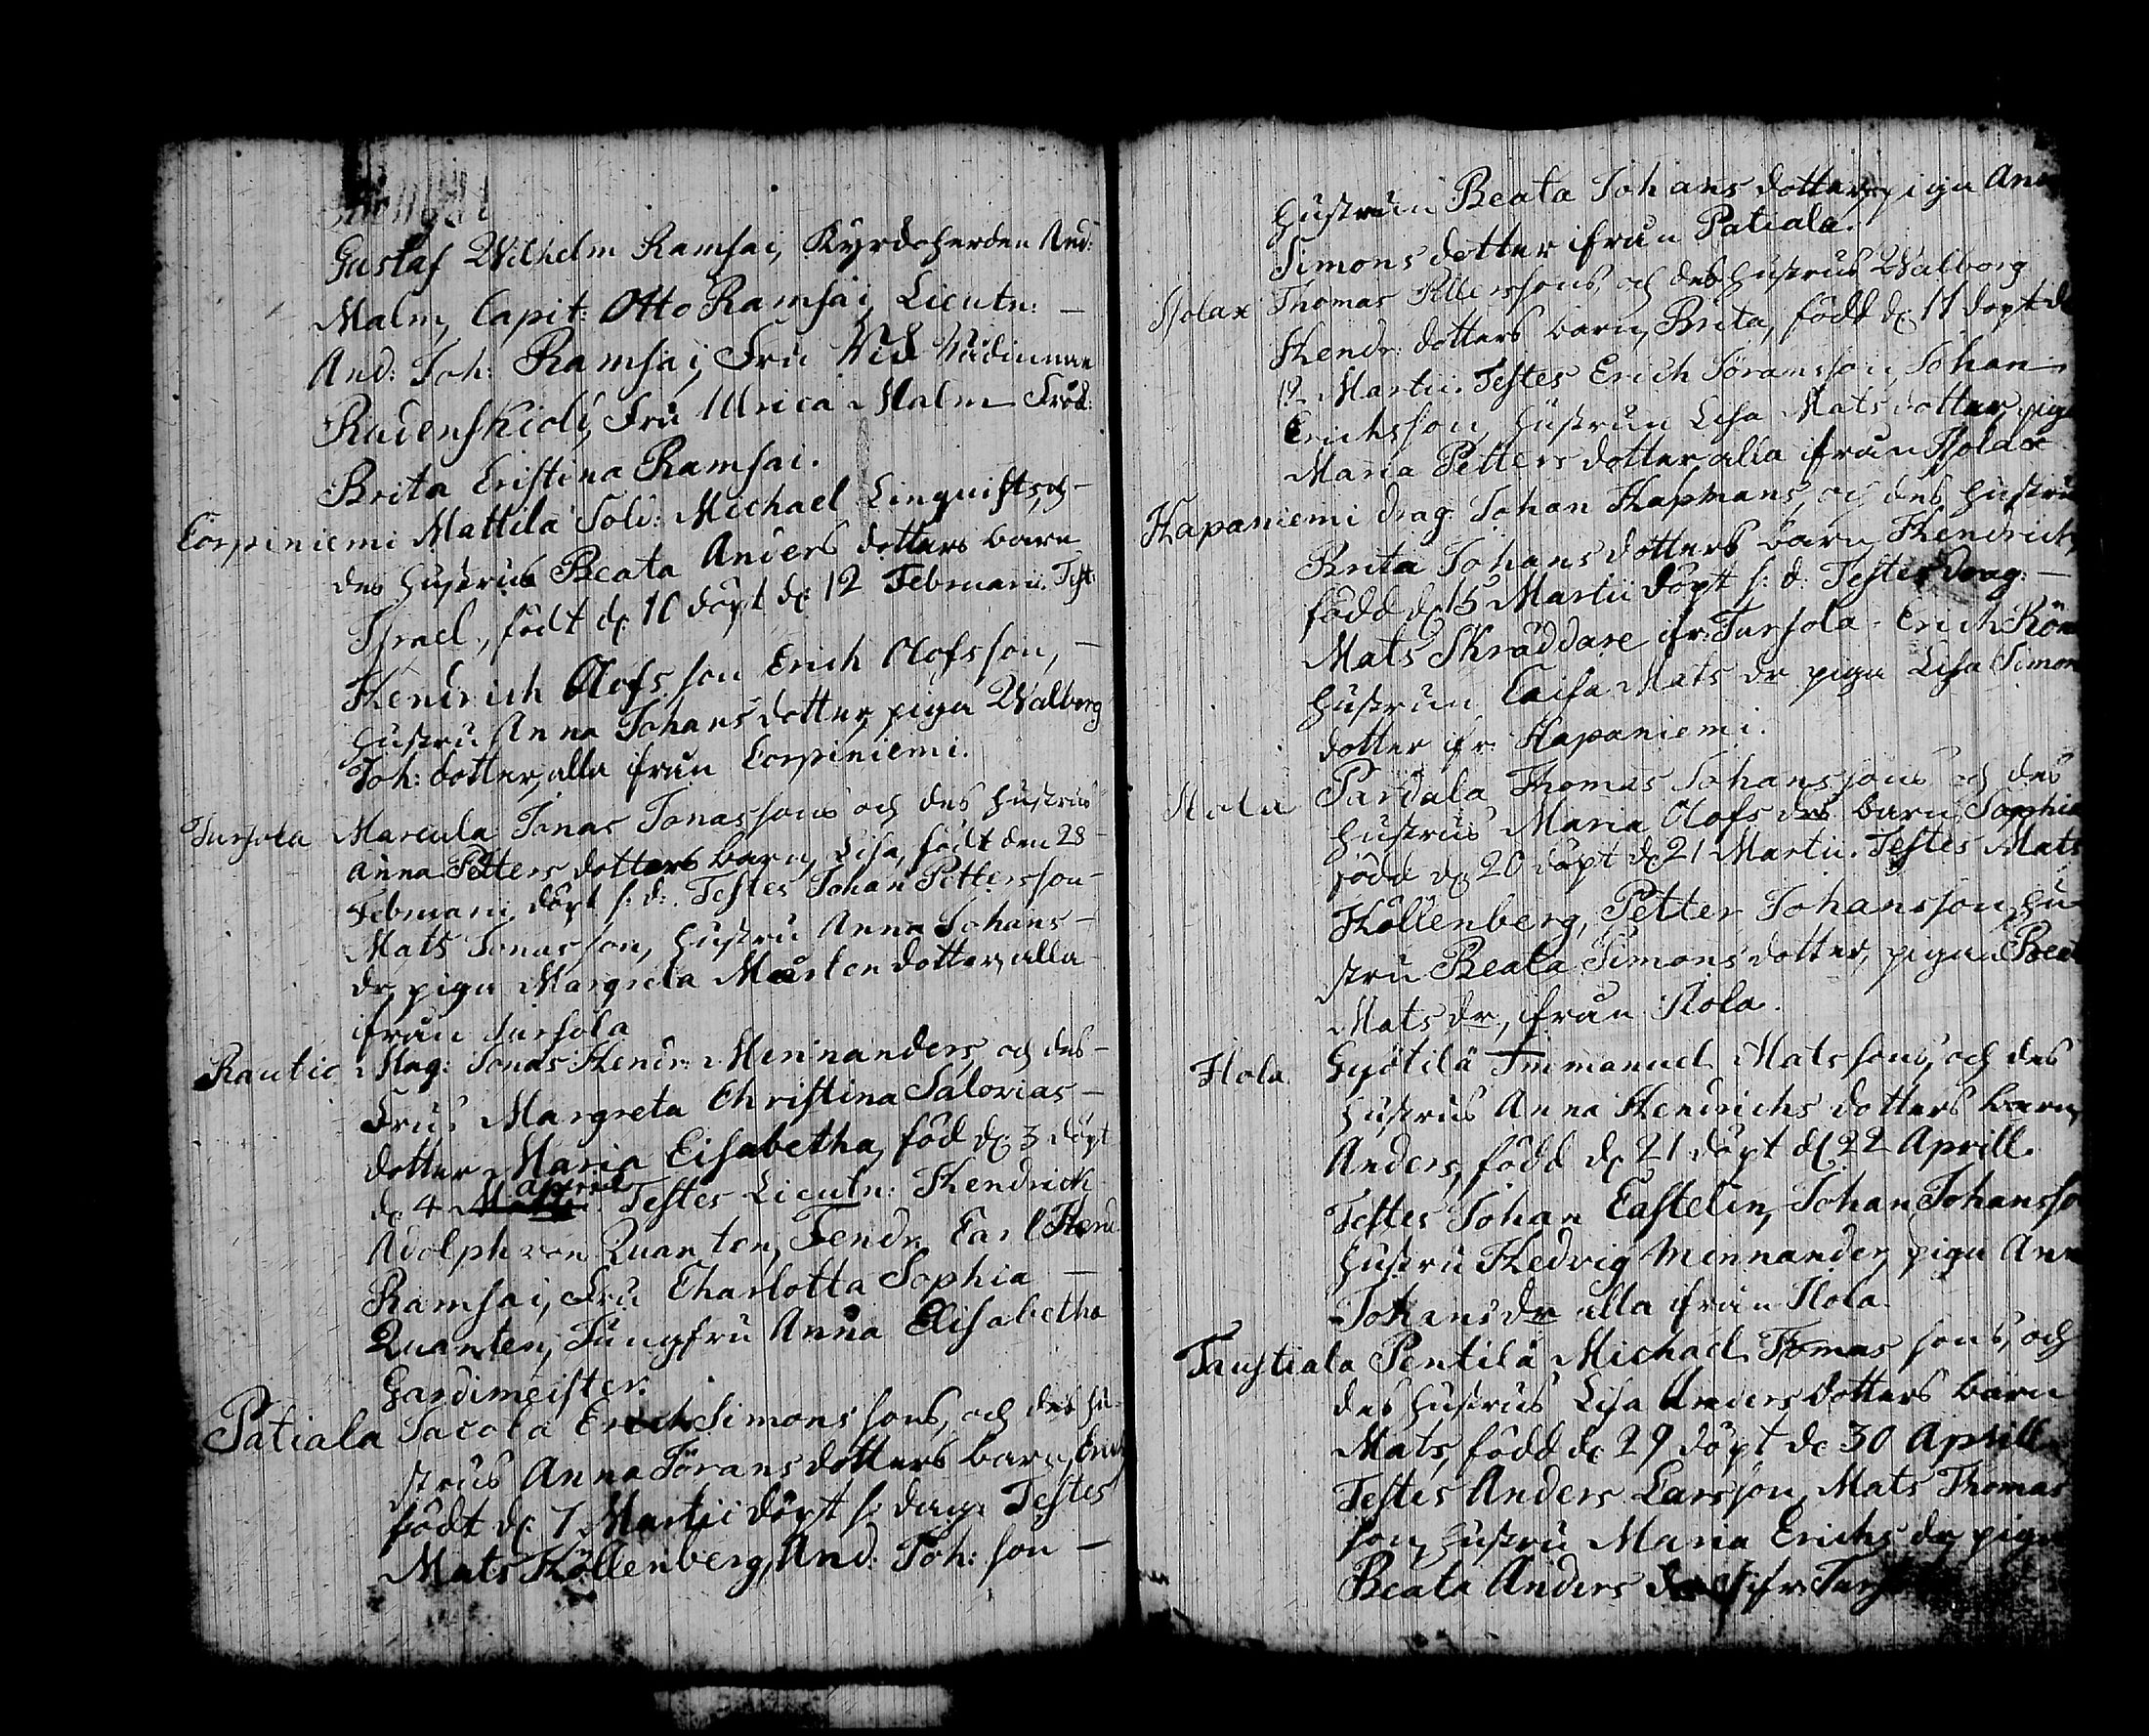 Gustaf Wilhelm Ramsai, Kyrdoherden And:
Malm, Capit: Otto Ramsai, Lieutn: —
And: Joh: Ramsai, Fru
Rudenskiöld, Fru Ulrica Malm Fröd:
Brita Cristina Ramsai.
Corpiniemi Mattila Sold: Michael Linquists, och —
des hustrus Beata Anders dotters barn
Israel, födt d: 10 döpt d: 12 Februarii. Test:
Hendrich Olofsson Erich Olofsson, —
hustru Anna Johans dotter, piga Walborg
Joh: dotter, alla ifrån Corpiniemi.
Tursola Marcula Jonas Jonassons och des hustrus
Anna Petters dotters barn, Lisa, födt den 28
Februarii, döpt s: d: Testes Johan Pettersson —
Mats Jonasson, hustru Anna Johans —
dr, piga Margreta Mårten dotter, alla
ifrån Tursola
Rautio Mag: Jonas Hendr: Mennanders, och des —
Frus Margreta Christina Salovias —
dotter Maria Elsabetha, föd d: 3 döpt
d: 4 April Testes Lieutn: Hendrick
Adolph von Quanten, Fendr: Carl Hend
Ramsai, Fru Charlotta Sophia —
Quanten, Jungfru Anna Elisabetha
Gardimeister.
Patiala Jacola Erich Simons sons, och des hu-
strus Anna Jörans dotters barn, Erich
födt d: 7 Martii döpt s: dag: Testes
Mats Höllenberg, And: Joh: son —
hustrun Beata Johans dotter, piga Ann
Simons dotter ifrån Patiala.
Holax Thomas Pettersons, och des hustrus Walborg
Hendr: dotters barn, Brita, född d: 11 döpt d
12 Martii. Testes Erich Jöransson, Johan
Erichsson, hustrun Lisa Mats dotter, piga
Maria Petters dotter, alla ifrån Holax
Hapaniemi drag: Johan Hapmans, och des hustru
Brita Johans dotters barn Hendrick,
född d: 15 Martii döpt s: d: Testes drag: —
Mats Skräddare ifr: Tursola. Erich Rön
hustrun Caisa Mats dr piga Lisa Simon
dotter ifr: Hapaniemi.
Hola Pardala Thomas Johanssons och des
hustrus Maria Olofs drs barn, Sophia
född d: 20 döpt d: 21 Martii. Testes Mats
Höllenberg, Petter Johansson, hu-
stru Beata Simons dotter, pigan Bea
Mats dr, ifrån Hola.
Hola Gyötilä Immanuel Matssons, och des
hustrus Anna Hendrichs dotters barn
Anders, född d: 21 döpt d: 22 Aprill.
Testes Johan Castelin, Johan Johansso
hustru Hedvig Mennander, piga Ann
Johans dr alla ifrån Hola.
Taustiala Pentilä Michael Thomas sons, och
des hustrus Lisa Anders dotters barn
Mats, född d: 29 döpt d: 30 Aprill
Testes Anders Larsson, Mats Thomas
son, hustru Maria Erichs dr, piga
Beata Anders ifr: